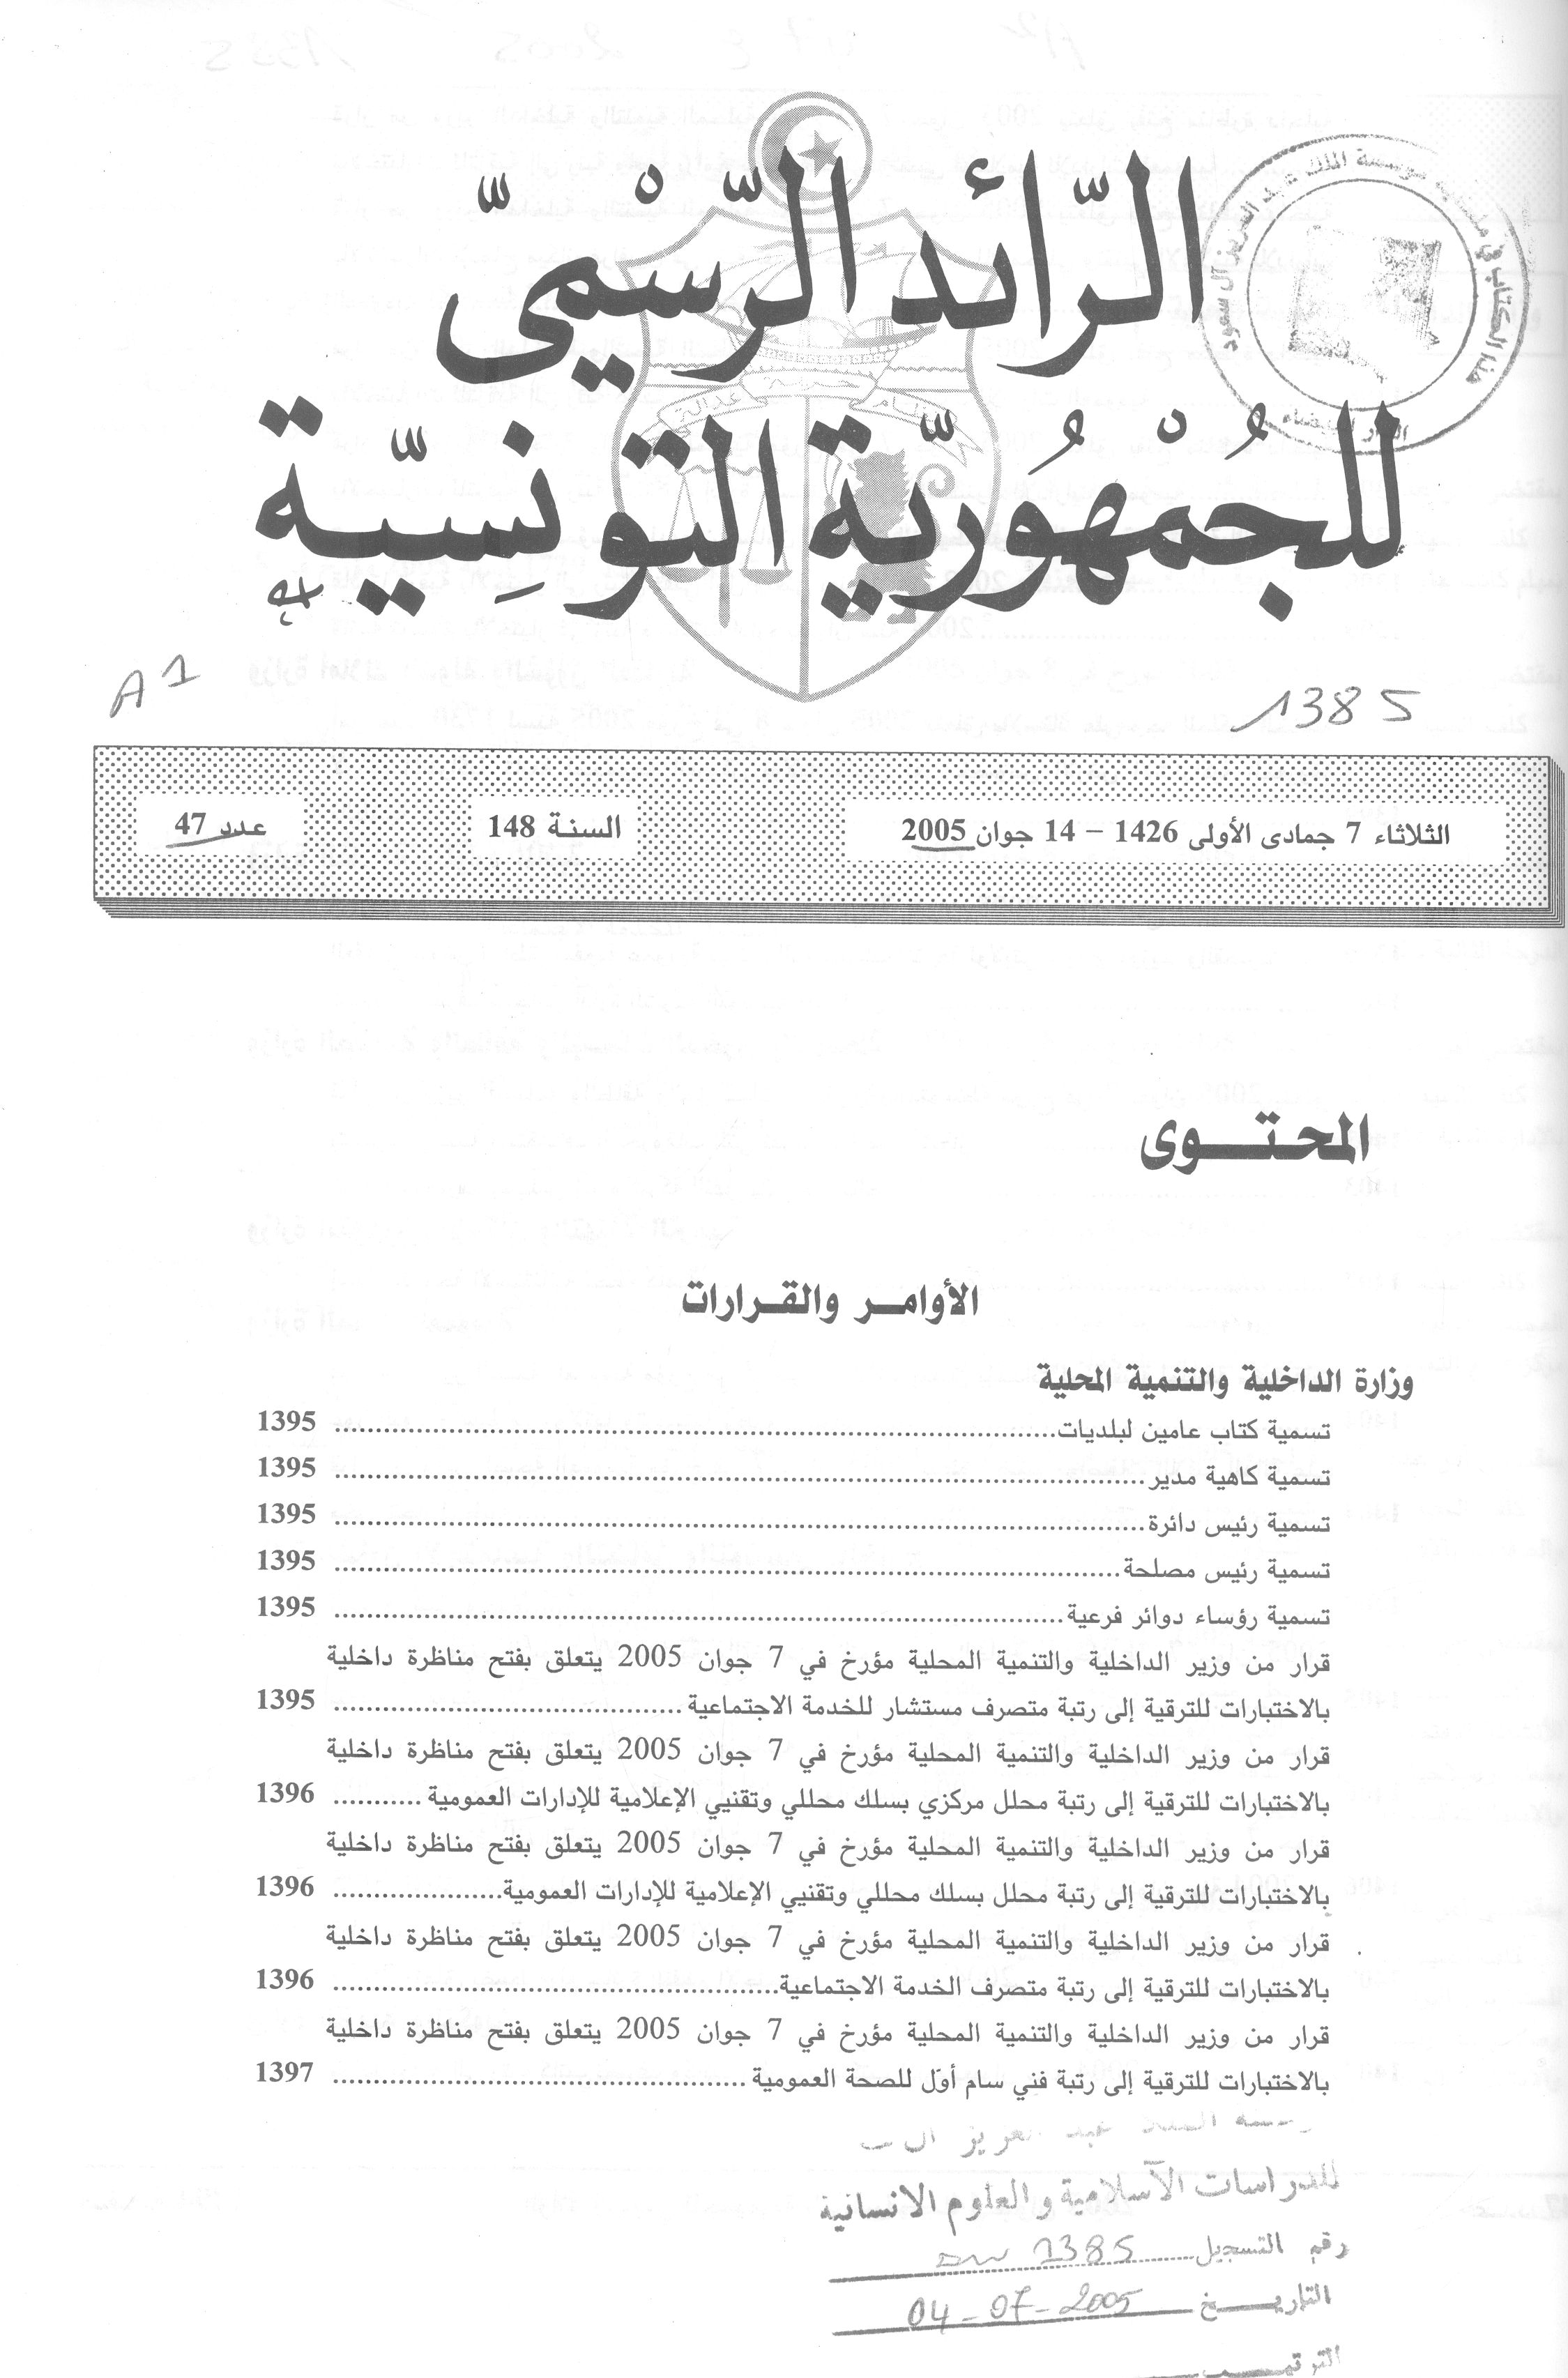 الرّائد الرّسْميّ
للجُمْهُوريّة التونِسيّة
حرية
نظام
عدالة
هذا الكتاب في ملكية مؤسسة الملك عبد العزيز آل سعود
الدار البيضاء
A1
1385
الثلاثاء 7 جمادى الأولى 1426 – 14 جوان 2005
السنة 148
عدد 47
المحتوى
الأوامر والقرارات
وزارة الداخلية والتنمية المحلية
تسمية كتاب عامين لبلديات.................... 1395
تسمية كاهية مدير.................... 1395
تسمية رئيس دائرة.................... 1395
تسمية رئيس مصلحة.................... 1395
تسمية رؤساء دوائر فرعية.................... 1395
قرار من وزير الداخلية والتنمية المحلية مؤرخ في 7 جوان 2005 يتعلق بفتح مناظرة داخلية
بالاختبارات للترقية إلى رتبة متصرف مستشار للخدمة الاجتماعية.................... 1395
قرار من وزير الداخلية والتنمية المحلية مؤرخ في 7 جوان 2005 يتعلق بفتح مناظرة داخلية
بالاختبارات للترقية إلى رتبة محلل مركزي بسلك محللي وتقنيي الإعلامية للإدارات العمومية ........... 1396
قرار من وزير الداخلية والتنمية المحلية مؤرخ في 7 جوان 2005 يتعلق بفتح مناظرة داخلية
بالاختبارات للترقية إلى رتبة محلل بسلك محللي وتقنيي الإعلامية للإدارات العمومية.................... 1396
قرار من وزير الداخلية والتنمية المحلية مؤرخ في 7 جوان 2005 يتعلق بفتح مناظرة داخلية
بالاختبارات للترقية إلى رتبة متصرف الخدمة الاجتماعية.................... 1396
قرار من وزير الداخلية والتنمية المحلية مؤرخ في 7 جوان 2005 يتعلق بفتح مناظرة داخلية
بالاختبارات للترقية إلى رتبة فني سام أول للصحة العمومية.................... 1397
عبد العزيز
للدراسات الآسلامية والعلوم الانسانية
رقم التسجيل 1385
التاريخ 04-07-2005
الترتيب